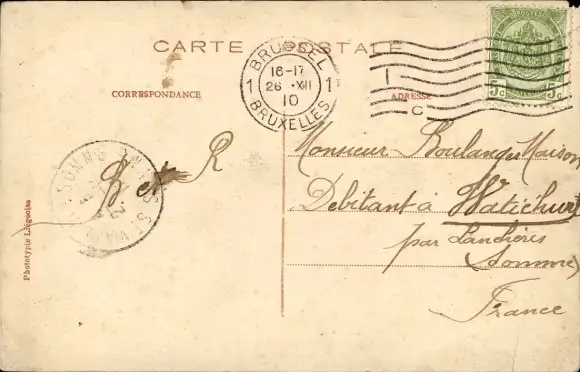 CARTE POSTALE
BRUSSEL
1 16-17 1
26 XII
10
BRUXELLES
POSTES
5c 5c
1
C
CORRESPONDANCE
ADRESSE
B et R
Monsieur Boulanger Maison
Debitant à
par Landrères
(Somme)
France
Phototypie Liégeoise